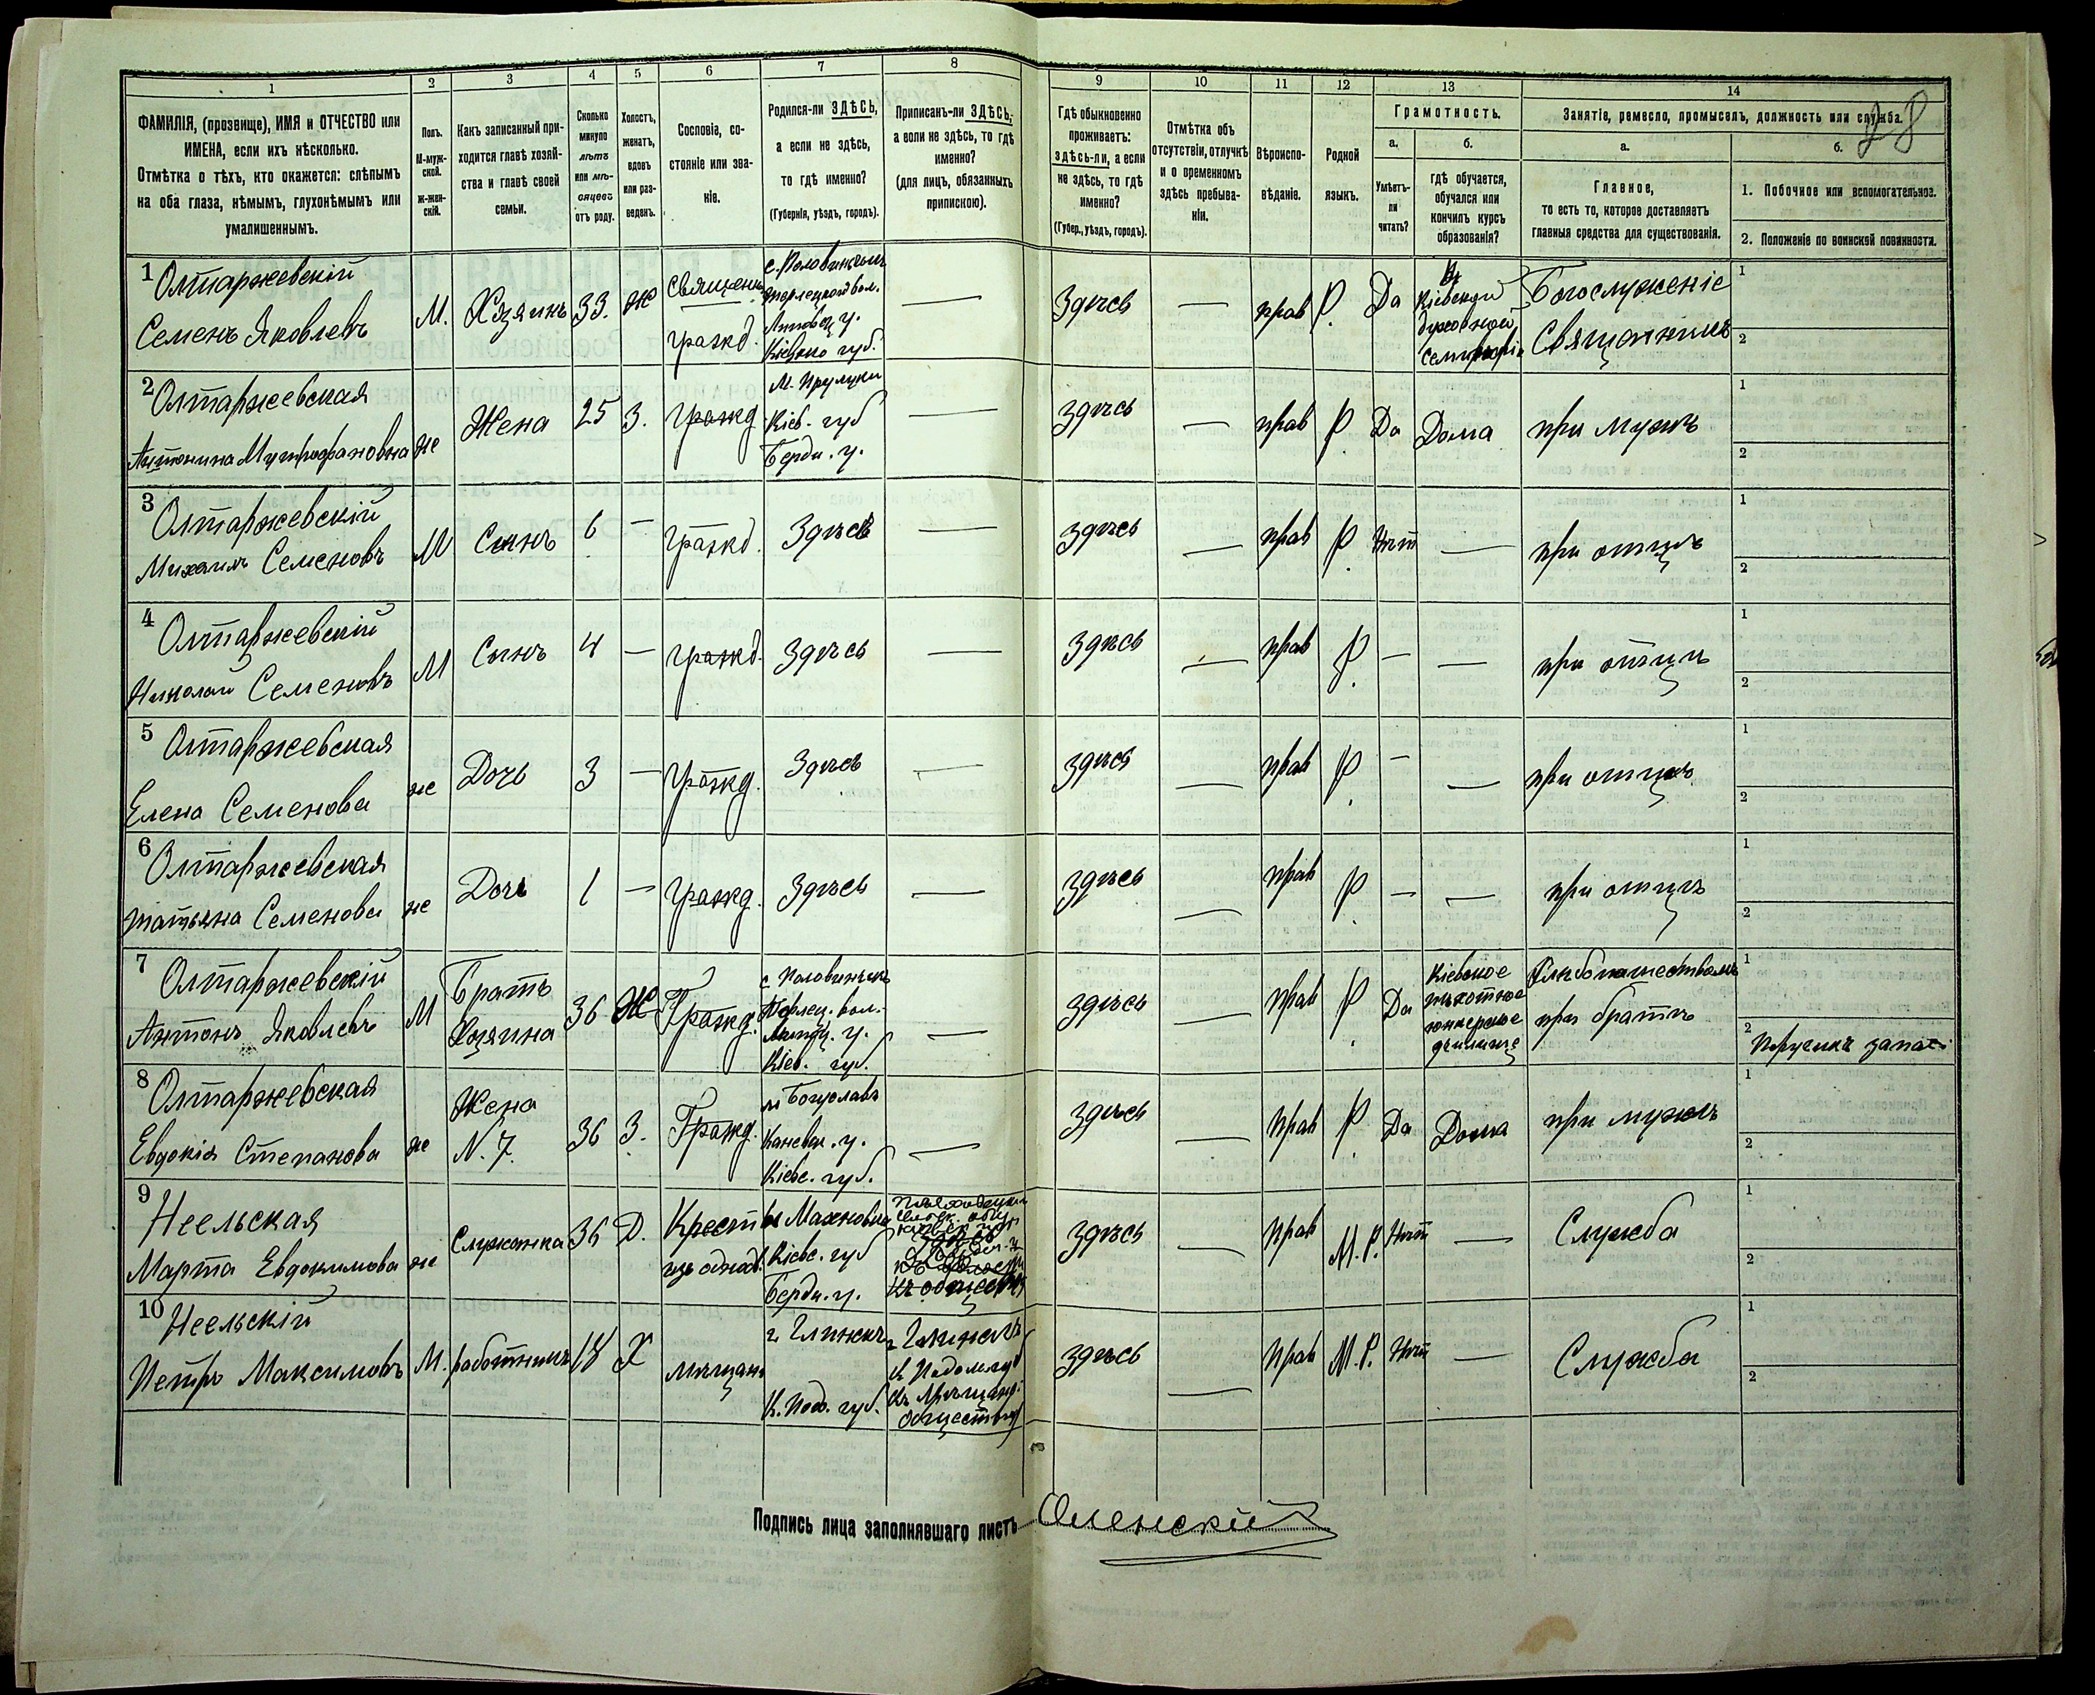 1
2
3
4
5
6
7
8
9
10
11
12
13
14
28
ФАМИЛІЯ, (прозвище), ИМЯ и ОТЧЕСТВО или
ИМЕНА, если ихъ нѣсколько.
Отмѣтка о тѣхъ, кто окажется: слѣпымъ
на оба глаза, нѣмымъ, глухонѣмымъ или
умалишеннымъ.
Полъ.
М-муж-
ской.
Ж-жен-
скій.
Какъ записанный при-
ходится главѣ хозяй-
ства и главѣ своей
семьи.
Сколько
минуло
лѣтъ
или мѣ-
сяцевъ
отъ роду.
Холостъ,
женатъ,
вдовъ
или раз-
веденъ.
Сословіе, со-
стояніе или зва-
ніе.
Родился-ли ЗДѢСЬ,
а если не здѣсь,
то гдѣ именно?
(Губернія, уѣздъ, городъ).
Приписанъ-ли ЗДѢСЬ,
а если не здѣсь, то гдѣ
именно?
(для лицъ, обязанныхъ
припискою).
Гдѣ обыкновенно
проживаетъ:
здѣсь-ли, а если
не здѣсь, то гдѣ
именно?
(Губер., уѣздъ, городъ).
Отмѣтка объ
отсутствіи, отлучкѣ
и о временномъ
здѣсь пребыва-
ніи.
Вѣроиспо-
вѣданіе.
Родной
языкъ.
Грамотность.
а.
Умѣетъ-
ли
читать?
б.
гдѣ обучается,
обучался или
кончилъ курсъ
образованія?
Занятіе, ремесло, промыселъ, должность или служба.
а.
Главное,
то есть то, которое доставляетъ
главныя средства для существованія.
б.
1. Побочное или вспомогательное.
2. Положеніе по воинской повинности.
1
Олтаржевскій
Семенъ Яковлевъ
М.
Хозяинъ
33.
Ж
Священ
гражд.
с. Половинчикъ
Липовец. у.
Кіевско губ.
—
Здѣсь
—
прав
Р.
Да
Кіевской
духовной
семинаріи
Богослуженіе
Священникъ
1
2
2
Олтаржевская
Антонина Митрофановна
же
Жена
25
З.
Гражд
м. Прилуки
Кіев. губ
Берди. у.
—
здѣсь
—
прав
Р
Да
Дома
при мужѣ
1
2
3
Олтаржевскій
Михаилъ Семеновъ
М
Сынъ
6
—
гражд.
Здѣсь
—
здѣсь
—
прав
Р.
Нѣт
—
при отцѣ
1
2
4
Олтаржевскій
Николай Семеновъ
М
Сынъ
4
—
гражд.
Здѣсь
—
Здѣсь
—
прав
Р.
—
—
при отцѣ
1
2
5
Олтаржевская
Елена Семенова
же
Дочь
3
—
гражд.
Здѣсь
—
здѣсь
—
прав
Р.
—
—
при отцѣ
1
2
6
Олтаржевская
Татьяна Семенова
же
Дочь
1
—
гражд.
Здѣсь
—
здѣсь
—
прав
Р.
—
—
при отцѣ
1
2
7
Олтаржевскій
Антонъ Яковлевъ
М
Братъ
Хозяина
36
Ж
Гражд.
с Половинчикъ
Кіев. губ.
—
здѣсь
—
прав
Р.
Да
Кіевское
пѣхотное
юнкерское
училище
при братѣ
1
2
8
Олтаржевская
Евдокія Степанова
же
Жена
N. 7.
36
З.
Гражд.
м Богуславъ
Каневск. у.
Кіевс. губ.
—
здѣсь
—
Прав
Р.
Да
Дома
при мужѣ
1
2
9
Неельская
Марта Евдокимова
же
Служанка
36
Д.
Крестья
изъ однод.
м Махновка
Кіевс. губ
Берди. у.
здѣсь
—
Прав
М. Р.
Нѣт
—
Служба
1
2
10
Неельскій
Петръ Максимовъ
М.
работникъ
18
Х
мѣщан.
К. Под. губ.
К Подол губ
Къ Мѣщанс.
обществу
здѣсь
—
Прав
М. Р.
Нѣт
—
Служба
1
2
Подпись лица заполнявшаго листъ
Оленскій